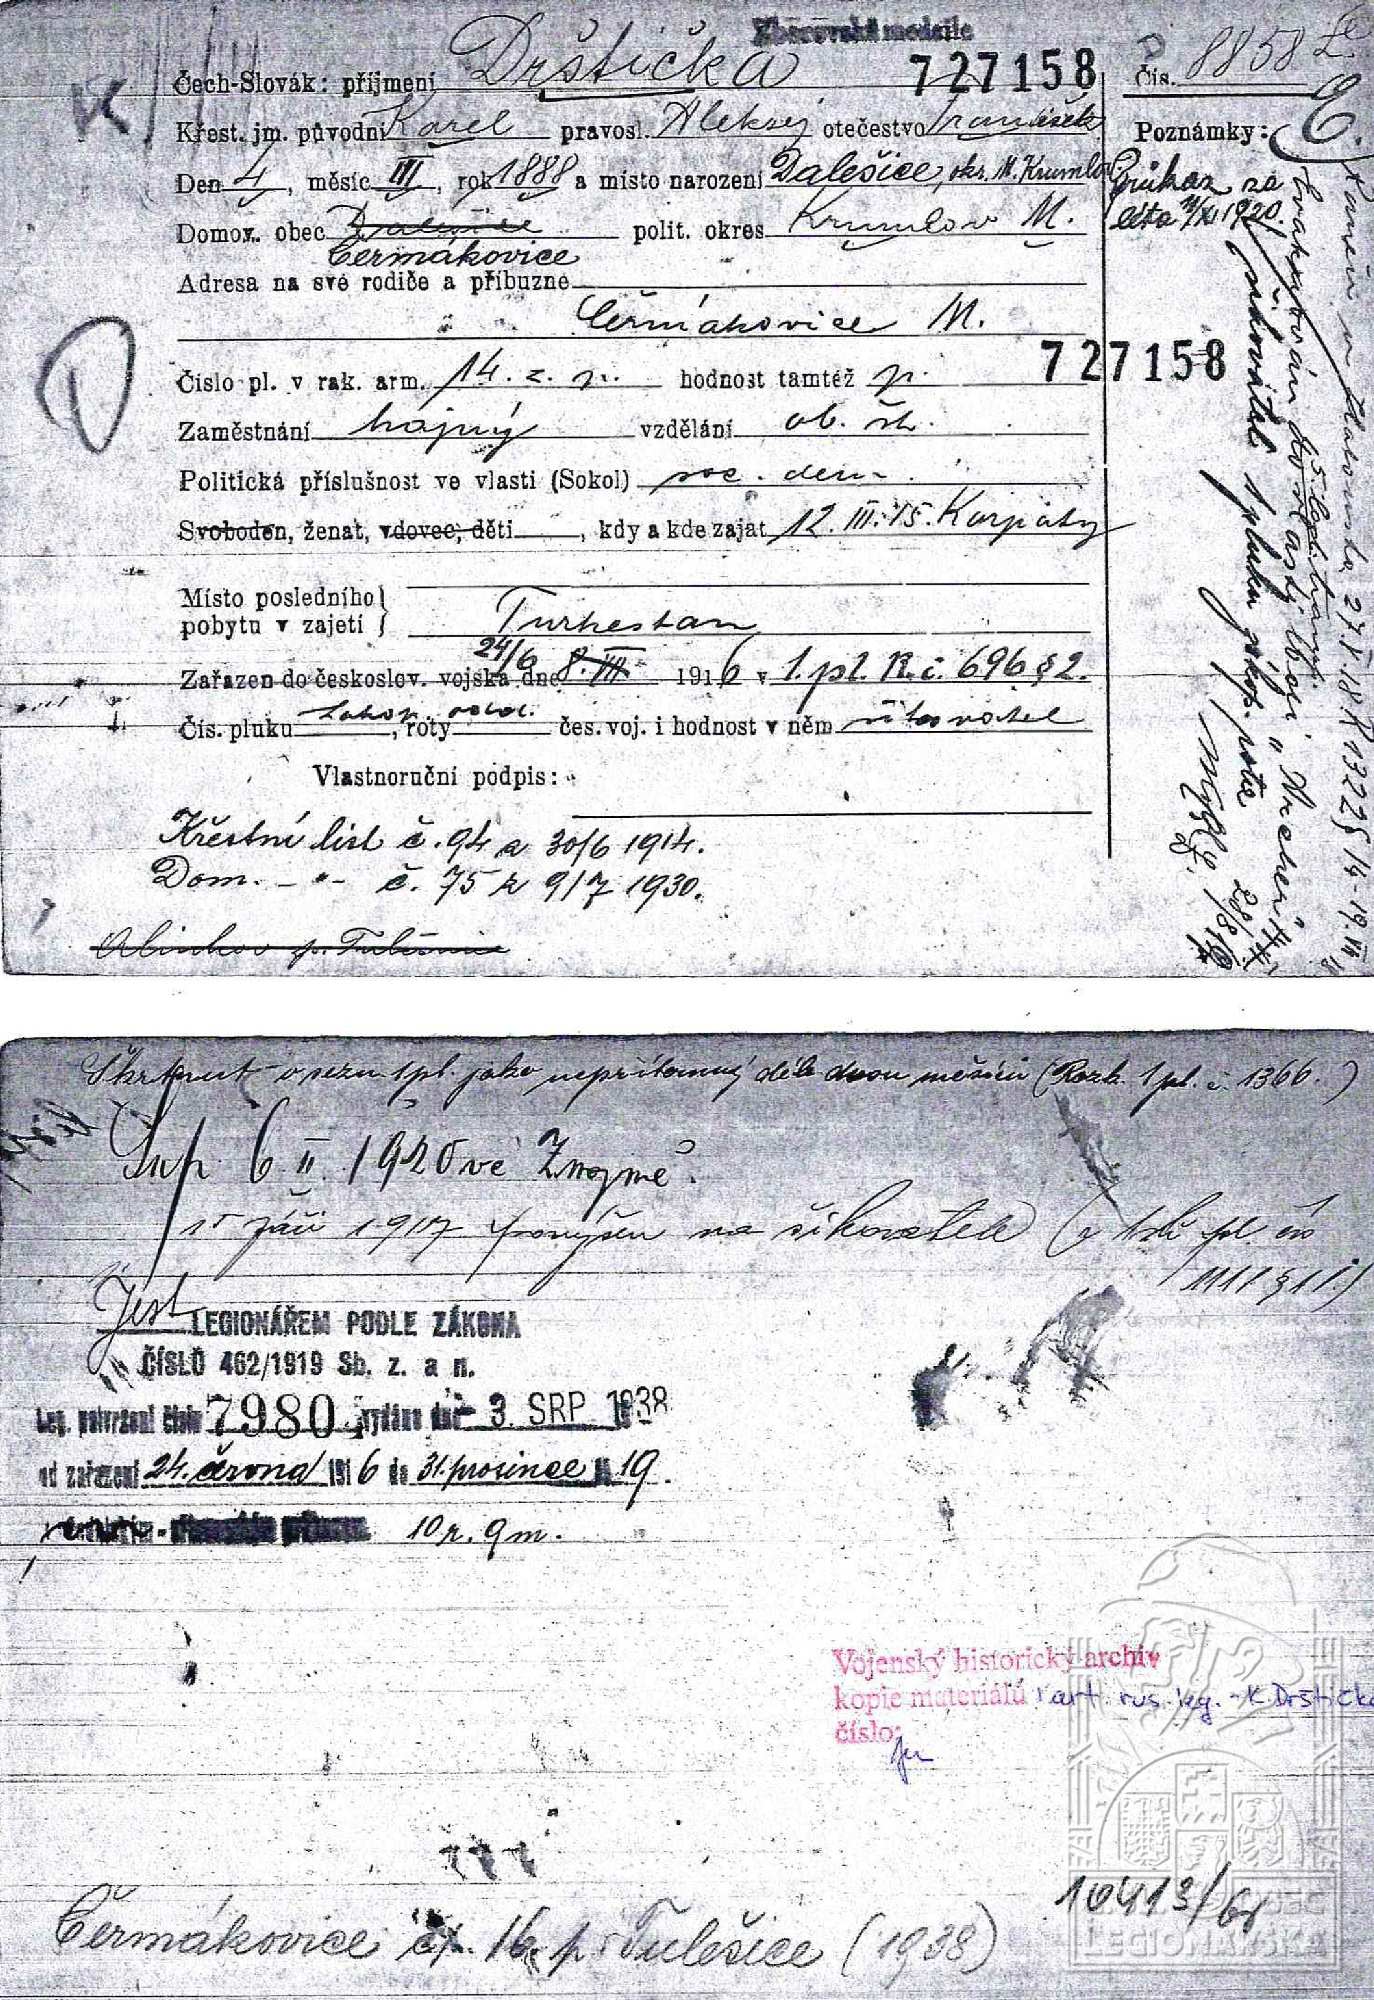 Zborovská medaile
Čech-Slovák: příjmení Drštička 727158
Křest. jm. původní Karel pravosl. Aleksěj otečestvo František
Den 4, měsíc III, rok 1888 a místo narození Dalešice, okr. M. Krumlov
Domov. obec Dalešice polit. okres Krumlov M.
Čermákovice
Adresa na své rodiče a příbuzné
Čermákovice M.
Číslo pl. v rak. arm. 14. z. p. hodnost tamtéž p.
Zaměstnání hajný vzdělání ob. šk.
Politická příslušnost ve vlasti (Sokol) soc. dem.
Svoboden, ženat, vdovec, děti , kdy a kde zajat 12. III. 15. Karpaty
Místo posledního
pobytu v zajetí } Turkestan
24/6
Zařazen do českoslov. vojska dne 8. VII 1916 v 1. pl. R. č. 696 § 2.
Čís. pluku , roty čes. voj. i hodnost v něm
Vlastnoruční podpis:
Křestní list č. 94 z 30/6 1914.
Dom. -"- č. 75 z 9/7 1930.
Čís. 8858
Poznámky:
Průkaz za
léta 1920.
727158
šikovatel 1 pluku
Evakuován do vlasti lodí "Archer"
Škrtnut 1 pl. jako nepřítomný déle dvou měsíců (Rozk. 1 pl. č. 1366.)
Sup. 6 II. 1920 ve Znojmě.
15 září 1917 povýšen na šikovatele
1111 § 1.)
Jest LEGIONÁŘEM PODLE ZÁKONA
ČÍSLO 462/1919 Sb. z. a n.
Leg. potvrzení číslo 7980 vydáno dne - 3. SRP. 1938
od zařazení 24. června 1916 do 31. prosince 19.
10 r. 9 m.
Vojenský historický archiv
kopie materiálů kart. rus. leg. - K. Drštička
číslo:
10413/68
OBEC
LEGIONÁŘSKÁ
Čermákovice čp. 16. p. Tulešice (1938)